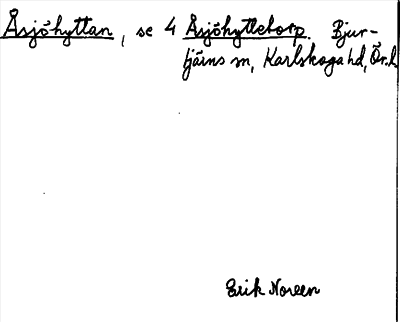 Åsjöhyttan, se 4 Åsjöhyttetorp. Bjur-
tjärns sn, Karlskoga hd, Ör. l.
Erik Noreen